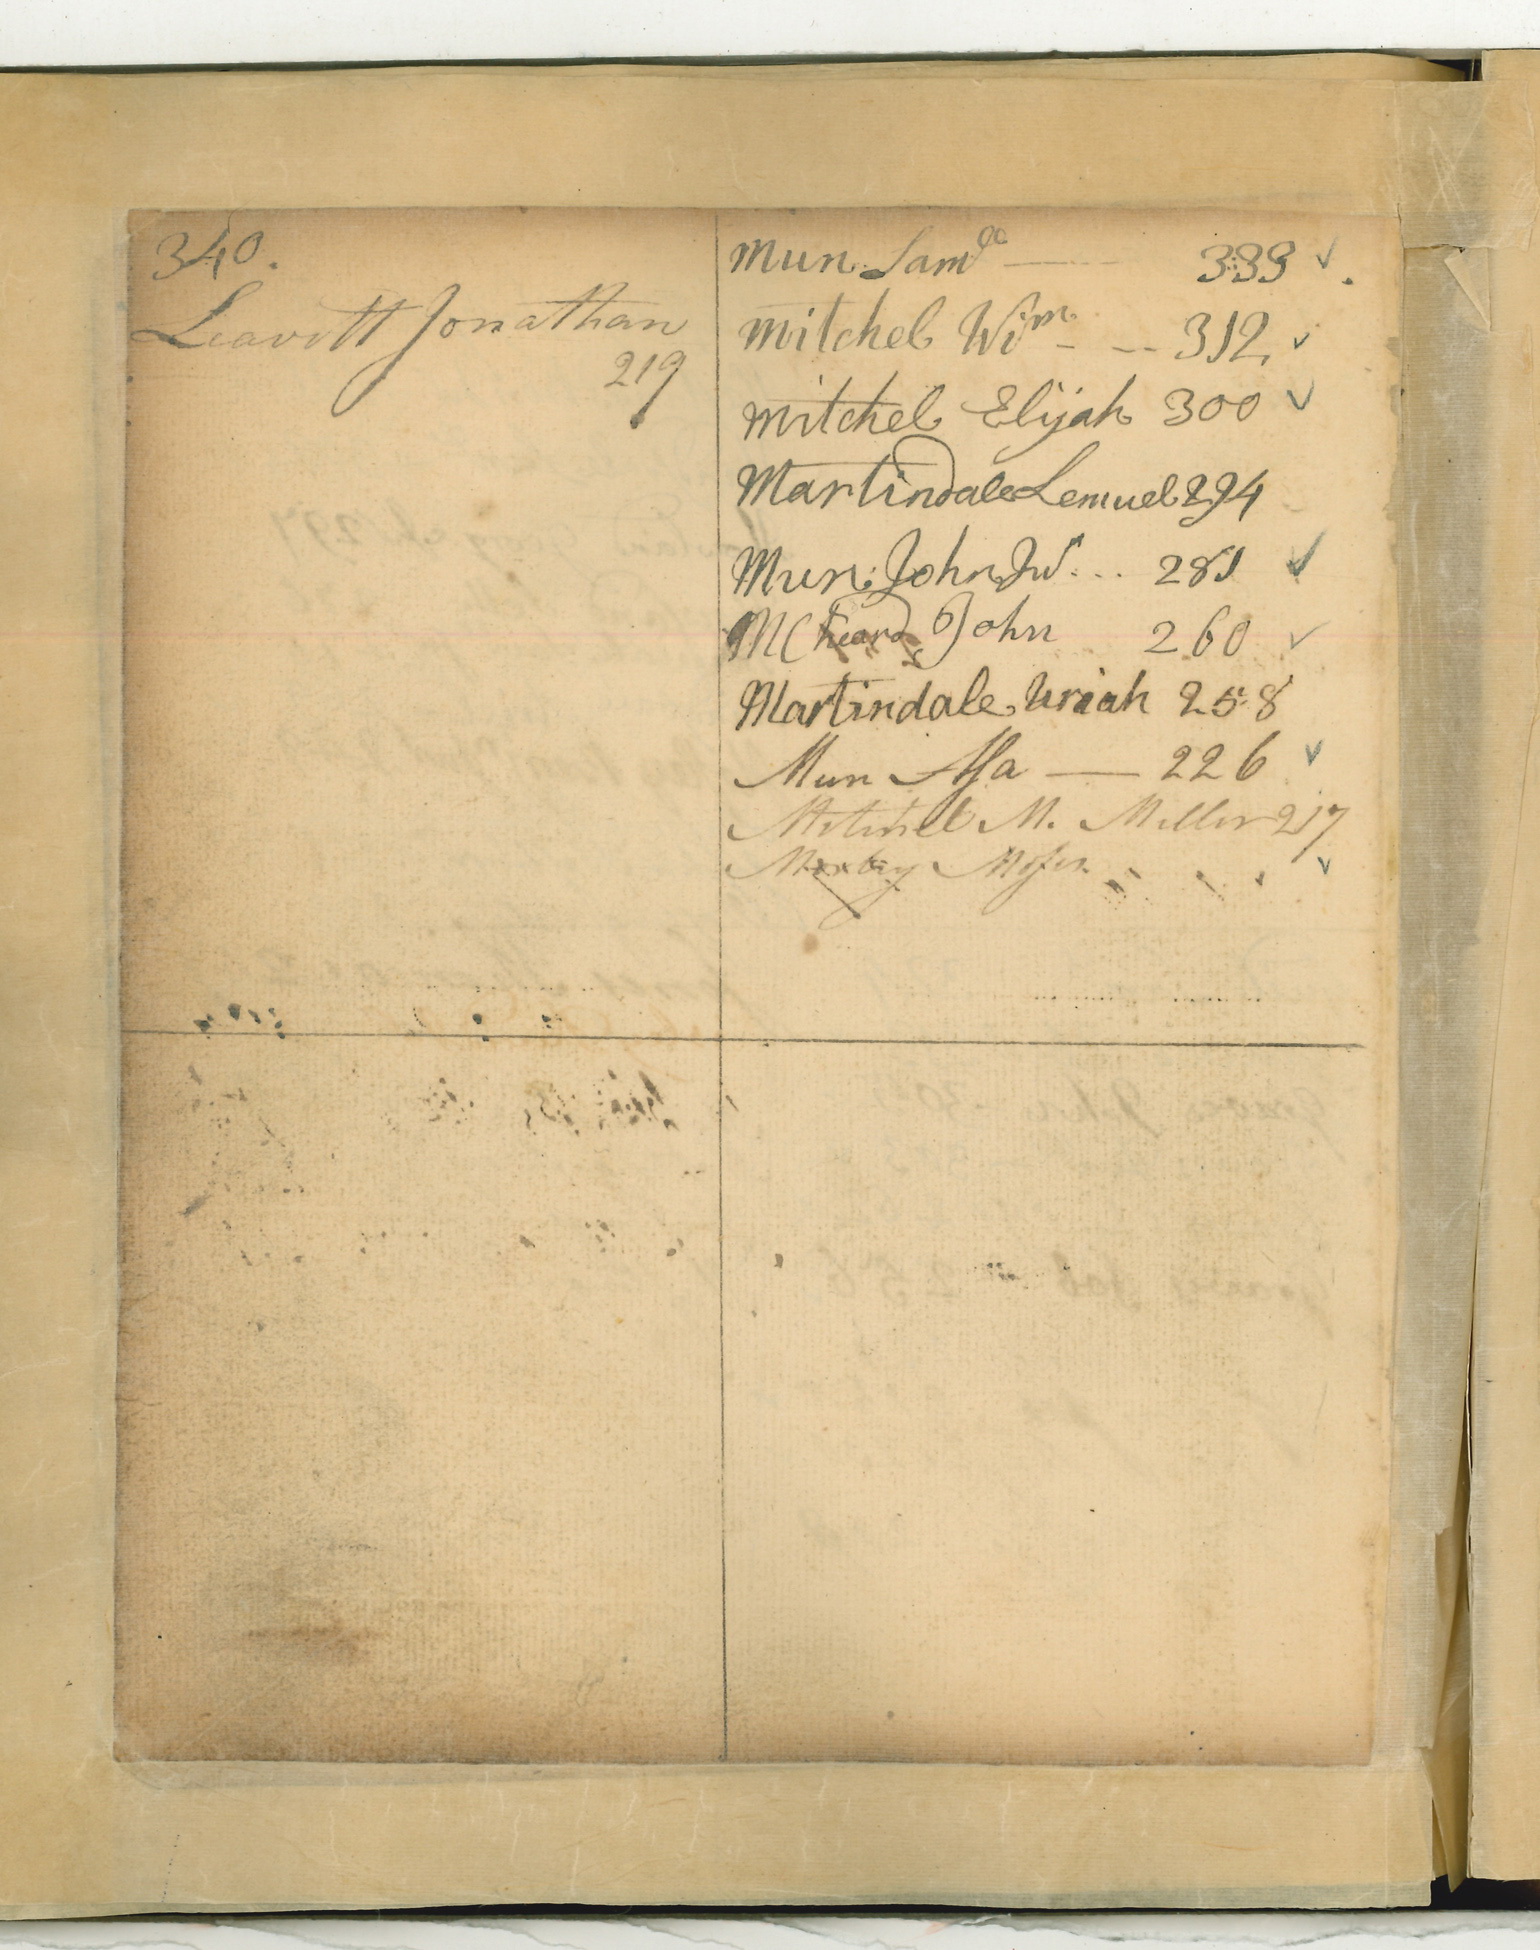 340.
Leavitt Jonathan
219
Mun Saml 339
mitchel Wim 312
mitchel Elijah 300
Martindale Lemuel 294
Mun John Jur 281
John 260
Martindale Uriah 258
Mun Asa 226
M. Miller 217
Moses